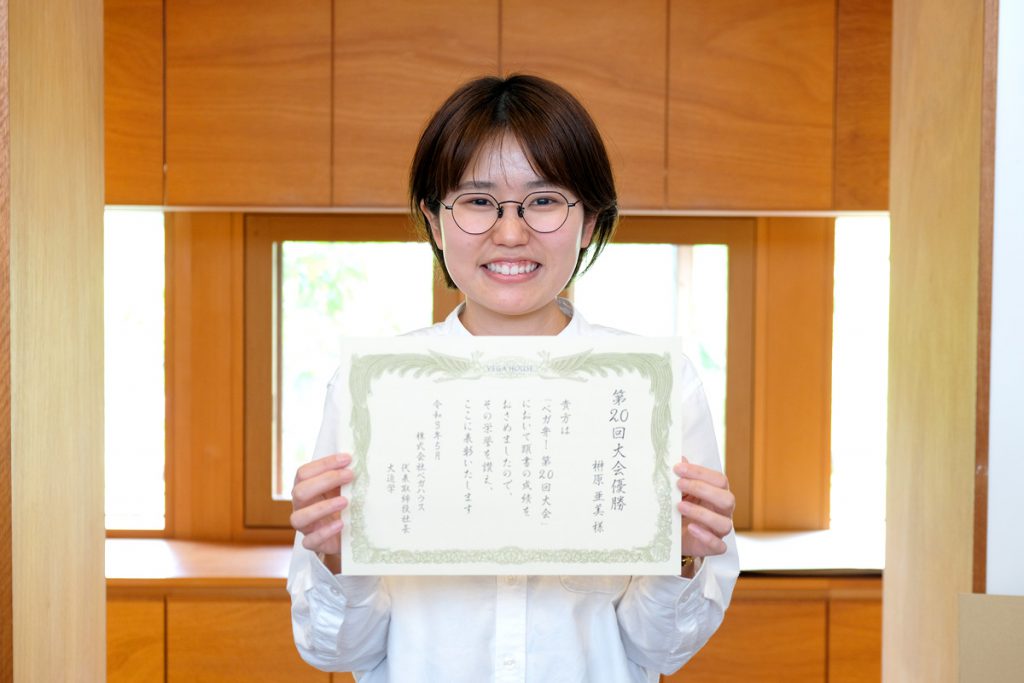 VEGA HOUSE
第20回大会優勝
榊原 亜美 様
貴方は
「ベガ弁ー第20回大会」
において頭書の成績を
おさめましたので、
その栄誉を讃え、
ここに表彰いたします
令和3年5月
株式会社ベガハウス
代表取締役社長
大迫学